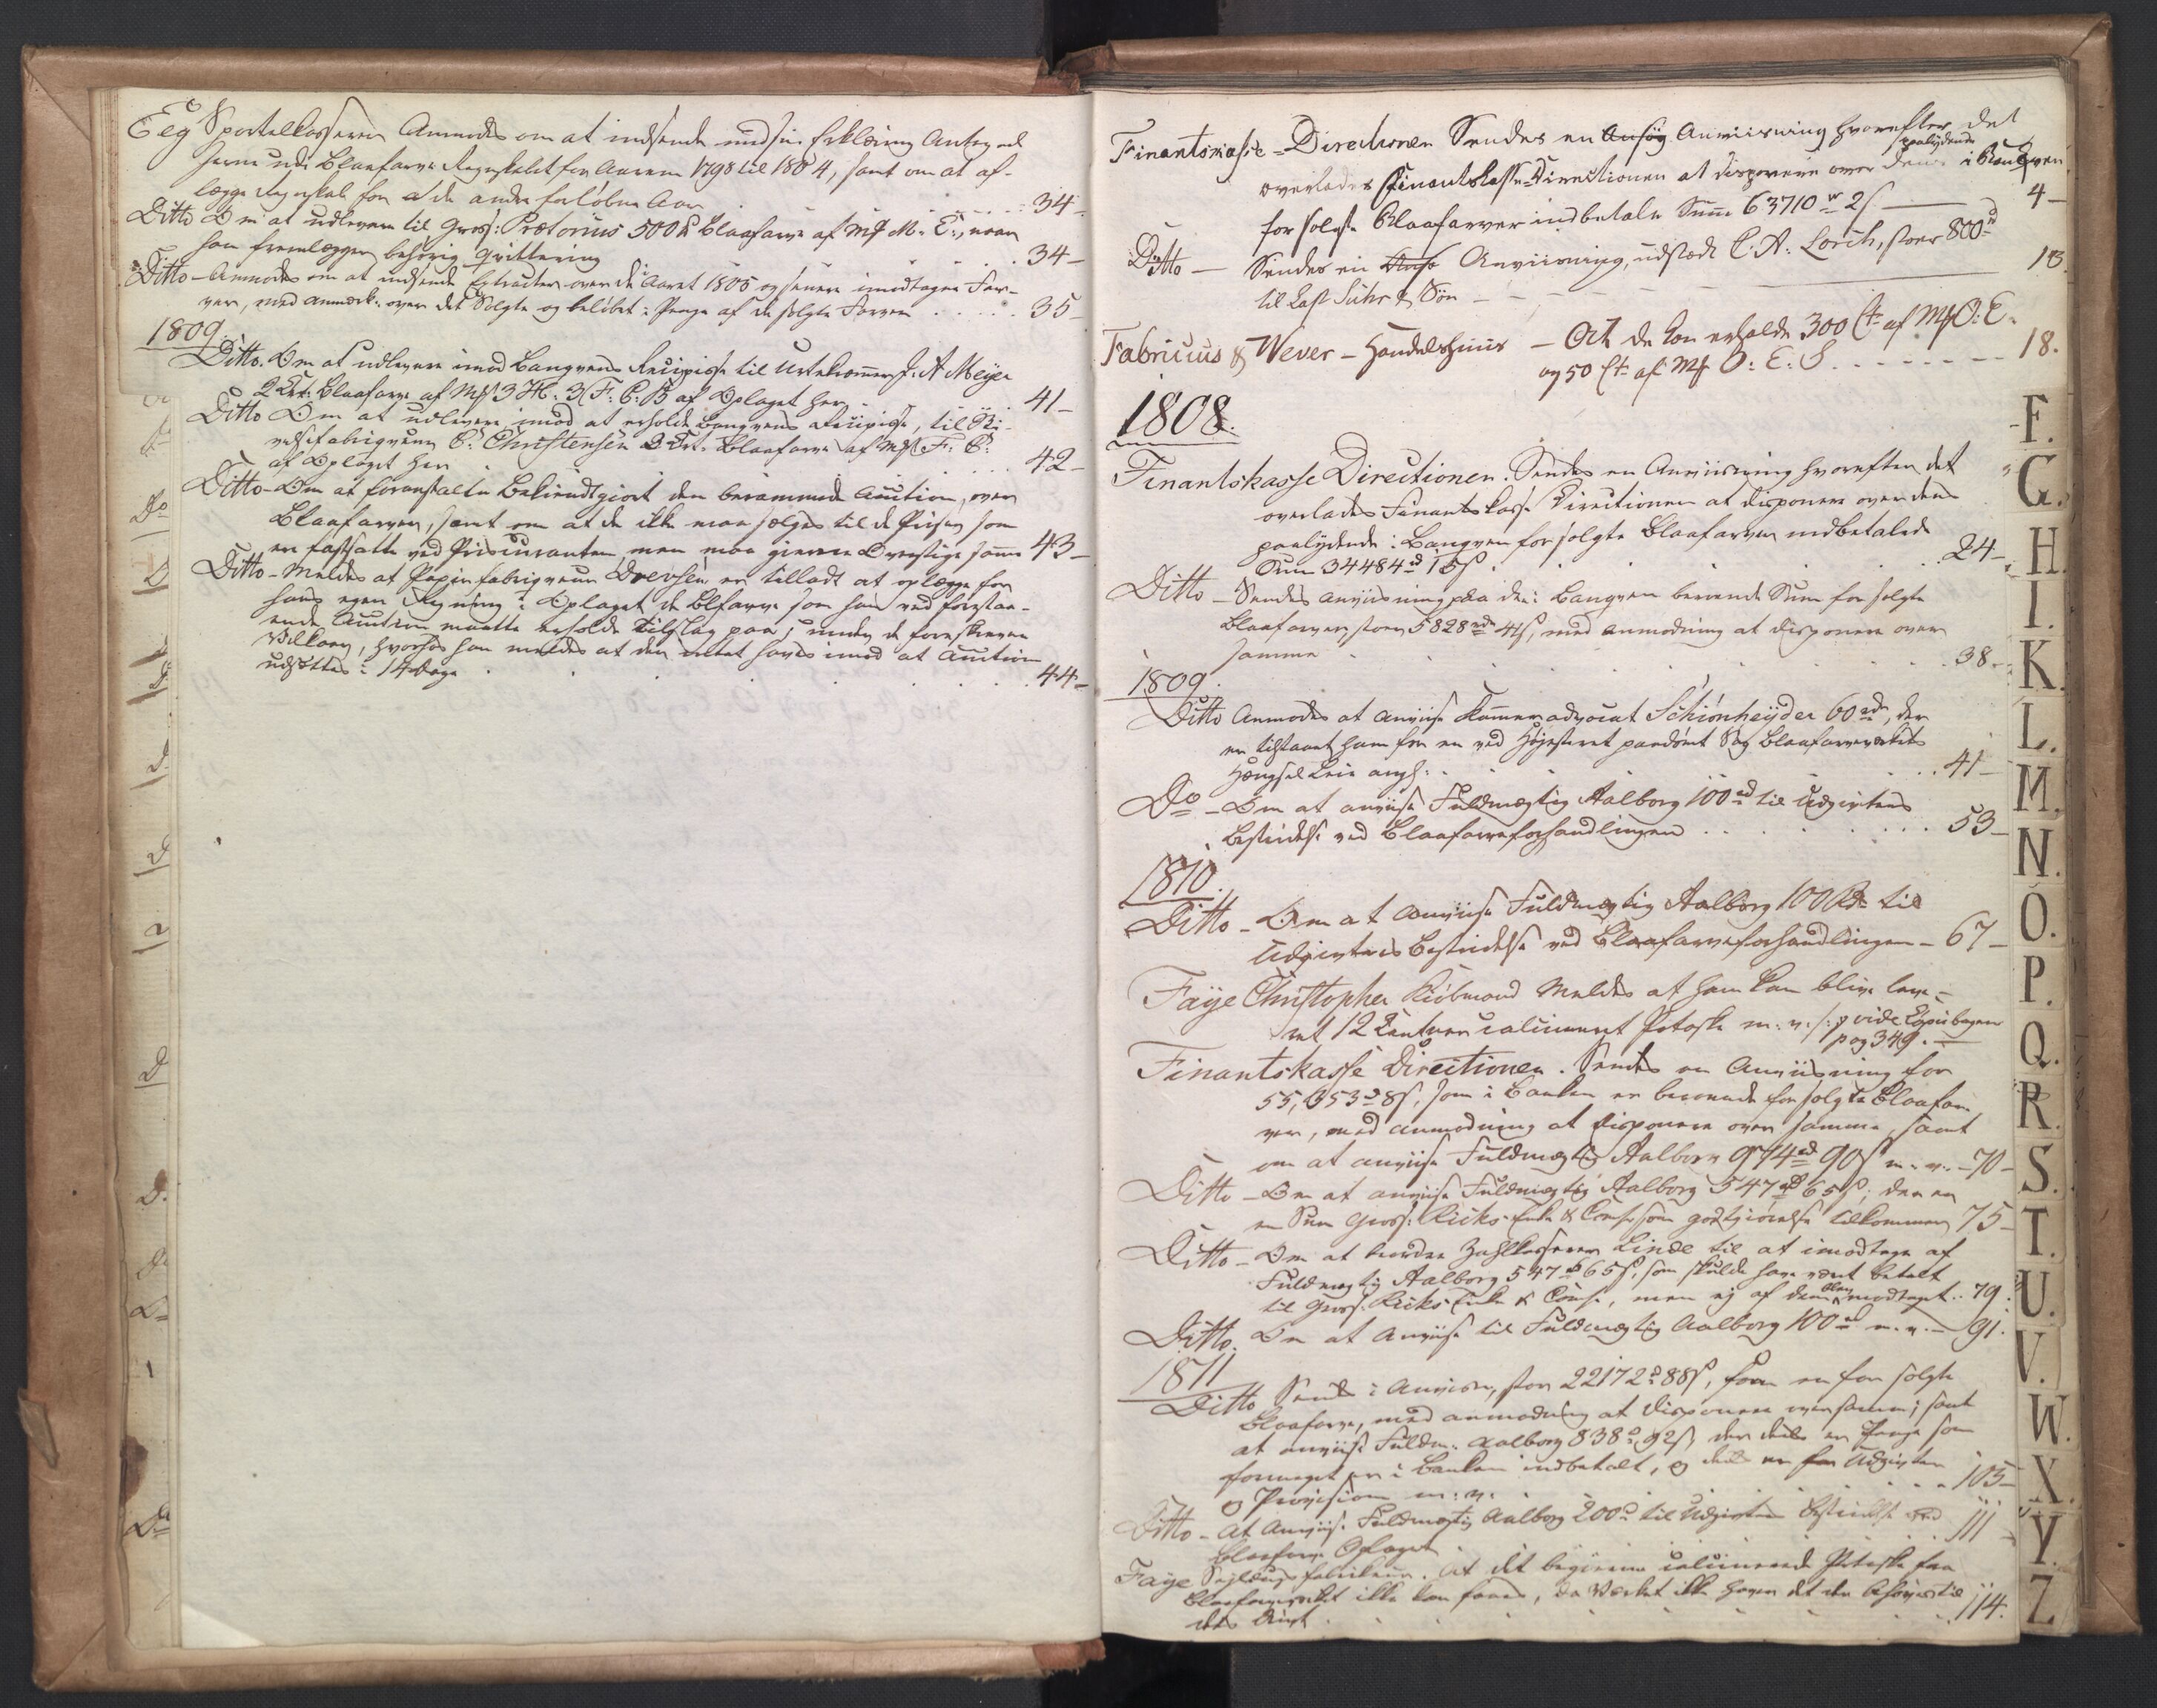 Eeg Sportelkasserer Anmodes om at indsende med sin Erklæring Antegnel
serne udi Blaafarve Regnskabet for Aarene 1798 til 1804, samt om at af-
lægge Regnskab for de andre forløbne Aar . . . . 34-
Ditto Om at udlevere til Gross: Prætorius 500 ℔ Blaafarve af Mf M: E:, naar
han fremlægger behørig Qvittering . . . . 34-
Ditto - Anmodes om at indsende Extracter over de Aaret 1805 og senere imodtagne Far-
ver, med Anmærk: over det Solgte og beløbet i Penge af de solgte Farver . . . . 35-
1809.
Ditto. Om at udlevere imod Banqvens Recipisse til Urtekræmmer J. A Meyer
2 Ctr: Blaafarve af Mf 3 H. 3 F: C: B af Oplaget her . . 41-
Ditto Om at udlevere imod at erholde Banqvens Recipisse, til
fabriqveur C: Christensen 2 Ctr. Blaafarve af Mf F: C:
af Oplaget her . . . . 42-
Ditto - Om at foranstalte bekiendtgiort den berammede Auction, over
Blaafarven, samt om at de ikke maa sælges til de Priser som
er fastsatte ved Priscuranten men maa gierne overstige samme 43-
Ditto - Meldes at Papirfabriqveur Drevsen er tilladt at oplægge for
hans egen Regning i Oplaget de Blfarve som han ved forestaa-
ende Auction maatte erholde Tilslag paa, under de foreskrevne
Vilkaar, hvorhos han meldes at den intet haves imod at Auction
udsættes i 14 Dage . . . . 44-
Finantskasse-Directionen Sendes en Anviisning hvorefter det
overlades Finantskasse-Directionen at disponere over den paalydende i Banqven
for solgte Blaafarver indbetalte Sum 63710 rd 2 s — 4-
Ditto — Sendes en Anviisning, udstædt C. A: Lorch, stor 800 rd
til Last Suhr & Søn — 13.
Fabricius & Wever - Handelshuus - At de kan erholde 300 Ct. af Mf O: E:
og 50 Ct. af Mf O: E: S . . . . 18.
1808.
Finantskasse Directionen. Sendes en Anviisning hvorefter det
overlades Finantskasse Directionen at disponere over dens
paalydende i Banqven for solgte Blaafarver indbetalede
Sum 34484 rd 15 s . . . . 24-
Ditto - Sendes Anviisning paa den i Banqven beroende Sum for solgte
Blaafarver stor 5828 rd 41 s, med Anmodning at disponere over
samme . . . . 38.
1809.
Ditto Anmodes at anviise Kammeradvocat Schiönheyder 60 rd, der
er tilstaaet ham for en ved Højesteret paadømt Sag Blaafarveværkets
angh: . . . . 41-
Do - Om at anviise Fuldmægtig Aalborg 100 rd til Udgivters
Bestridelse ved Blaafarveforhandlingen . . . . 53-
1810.
Ditto - Om at anviise Fuldmægtig Aalborg 100 Rd til
Udgivters Bestridelse ved Blaafarveforhandlingen - 67-
Faÿe Christopher Kiøbmand Meldes at ham kan blive leve-
ret 12 Centner calcineret Potaske m: v: /: vide Copiebogen
pag 349. —
Finantskasse Directionen. Sendes en Anviisning for
55,353 rd 8 s, som i Banken er beroende for solgte Blaafar
ver, med Anmodning at disponere over samme, samt
om at anviise Fuldmægtig Aalborg 974 rd 90 s m. v. - 70-
Ditto - Om at anviise Fuldmægtig Aalborg 547 rd 65 s, der er
en Sum Gross: Ricks Enke & Comp. som godtgiørelse tilkommer 75-
Ditto - Om at beordre Zahlkasserer Linde til at imodtage af
Fuldmægtig Aalborg 547 rd 65 s, som skulde have været betalt
til Gross. Ricks Enke & Comp., men ej af dem blev modtaget . . 79.
Ditto. Om at Anviise til Fuldmægtig Aalborg 100 rd m. v. — 91.
1811
Ditto Sendes 1 Anviisn, stor 22172 rd 88 s, som er for solgte
Blaafarve, med anmodning at disponere over samme; samt
at anviise Fuldm: Aalborg 838 rd 92 s, der deels er Penge som
formeget er i Banken indbetalt, og deels er for Udgivter
og Provision m: v. . . . . 105-
Ditto - At Anviise Fuldmægtig Aalborg 200 rd til Udgivters Bestridelse ved
Blaafarve Oplaget . . . . 111-
Faÿe Sejldugsfabrikeur. At det begierte calcinerede Potaske fra
Blaafarveværket ikke kan faaes, da Værket ikke haver det der behøves til
dets Drivt . . . . 114.
F.
G.
H.
I.
K.
L.
M.
N.
O.
P.
Q.
R.
S.
T.
U.
V.
W.
X.
Y.
Z